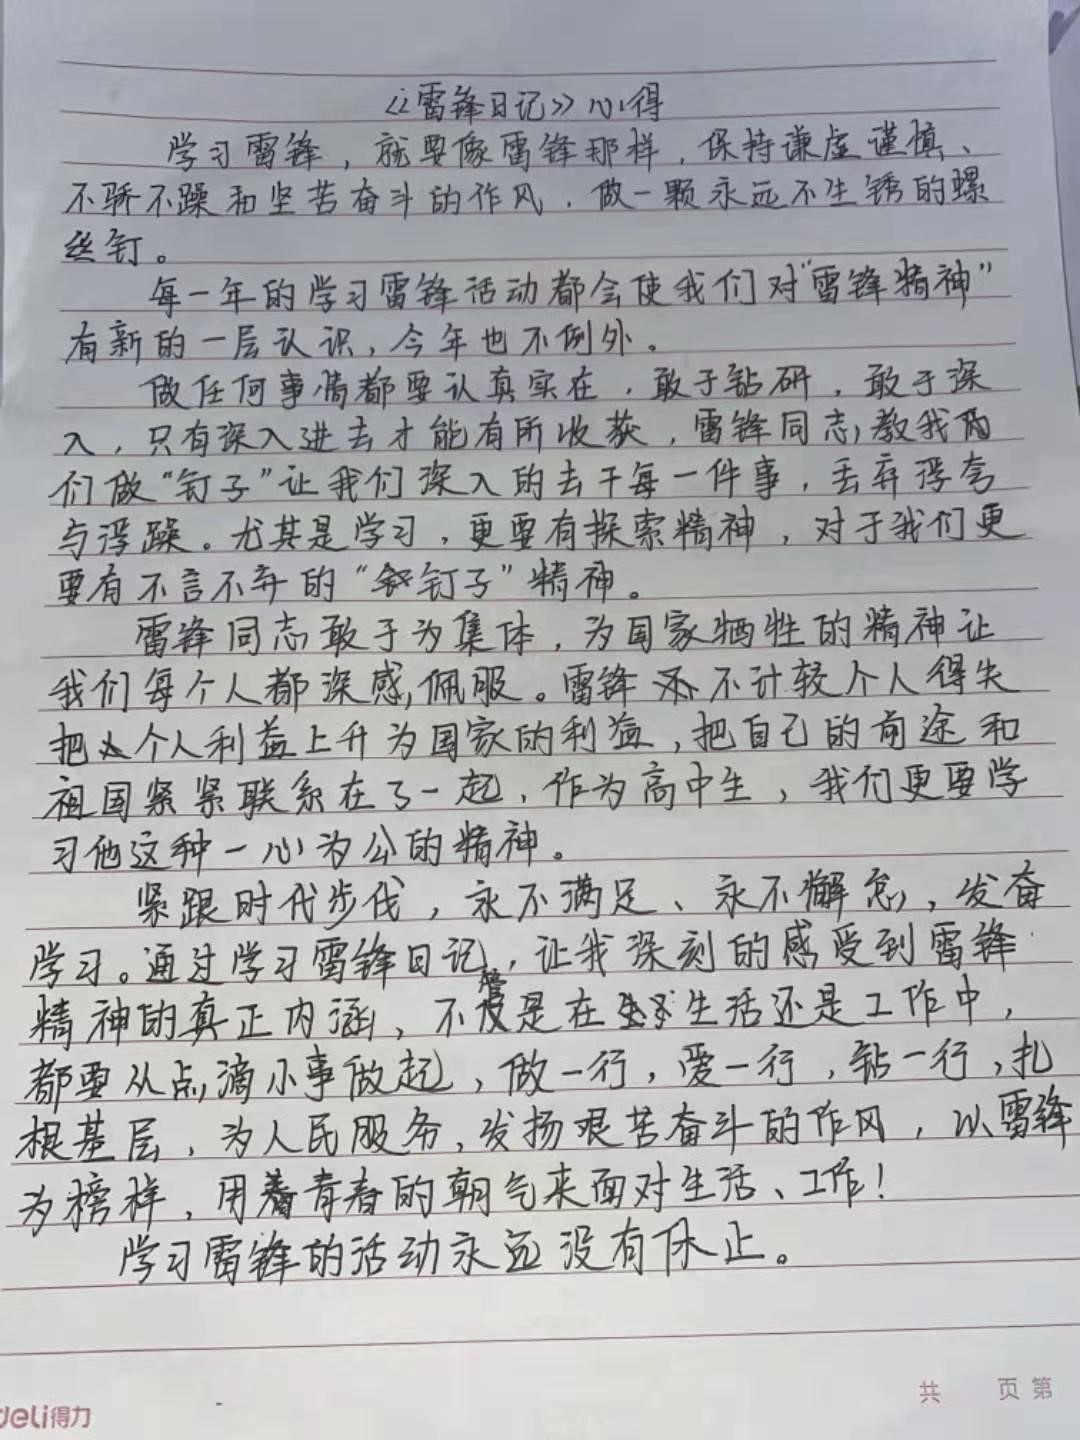 《雷锋日记》心得
学习雷锋，就要像雷锋那样，保持谦虚谨慎、
不骄不躁和坚苦奋斗的作风，做一颗永远不生锈的螺
丝钉。
每一年的学习雷锋活动都会使我们对“雷锋精神”
有新的一层认识，今年也不例外。
做任何事情都要认真实在，敢于钻研，敢于深
入，只有深入进去才能有所收获，雷锋同志教我
们做“钉子”让我们深入的去干每一件事，丢弃浮夸
与浮躁。尤其是学习，更要有探索精神，对于我们更
要有不言不弃的“钉子”精神。
雷锋同志敢于为集体，为国家牺牲的精神让
我们每个人都深感佩服。雷锋不计较个人得失
把个人利益上升为国家的利益，把自己的前途和
祖国紧紧联系在了一起，作为高中生，我们更要学
习他这种一心为公的精神。
紧跟时代步伐，永不满足、永不懈怠，发奋
学习。通过学习雷锋日记，让我深刻的感受到雷锋
精神的真正内涵，不管是在生活还是工作中，
都要从点滴小事做起，做一行，爱一行，钻一行，扎
根基层，为人民服务，发扬艰苦奋斗的作风，以雷锋
为榜样，用着青春的朝气来面对生活、工作！
学习雷锋的活动永远没有休止。
共 页 第
deli得力